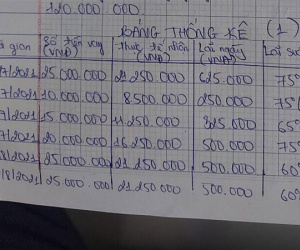 120.000 000
BẢNG THỐNG KÊ (1)
gian Số tiền vay (VNĐ) Thực tế nhận (VNĐ) Lãi ngày (VNĐ) Lãi suấ
7/2021 25.000.000 21 250.000 625.000 75
7/2021 10.000.000 8.500.000 250.000 75
7/2021 15.000.000 11 250.000 325.000 65
7/2021 20.000.000 16 250.000 500.000 75
8/2021 25.000.000 21.250.000 500.000 60
/8/2021 25.000.000 21.250.000 500.000 60